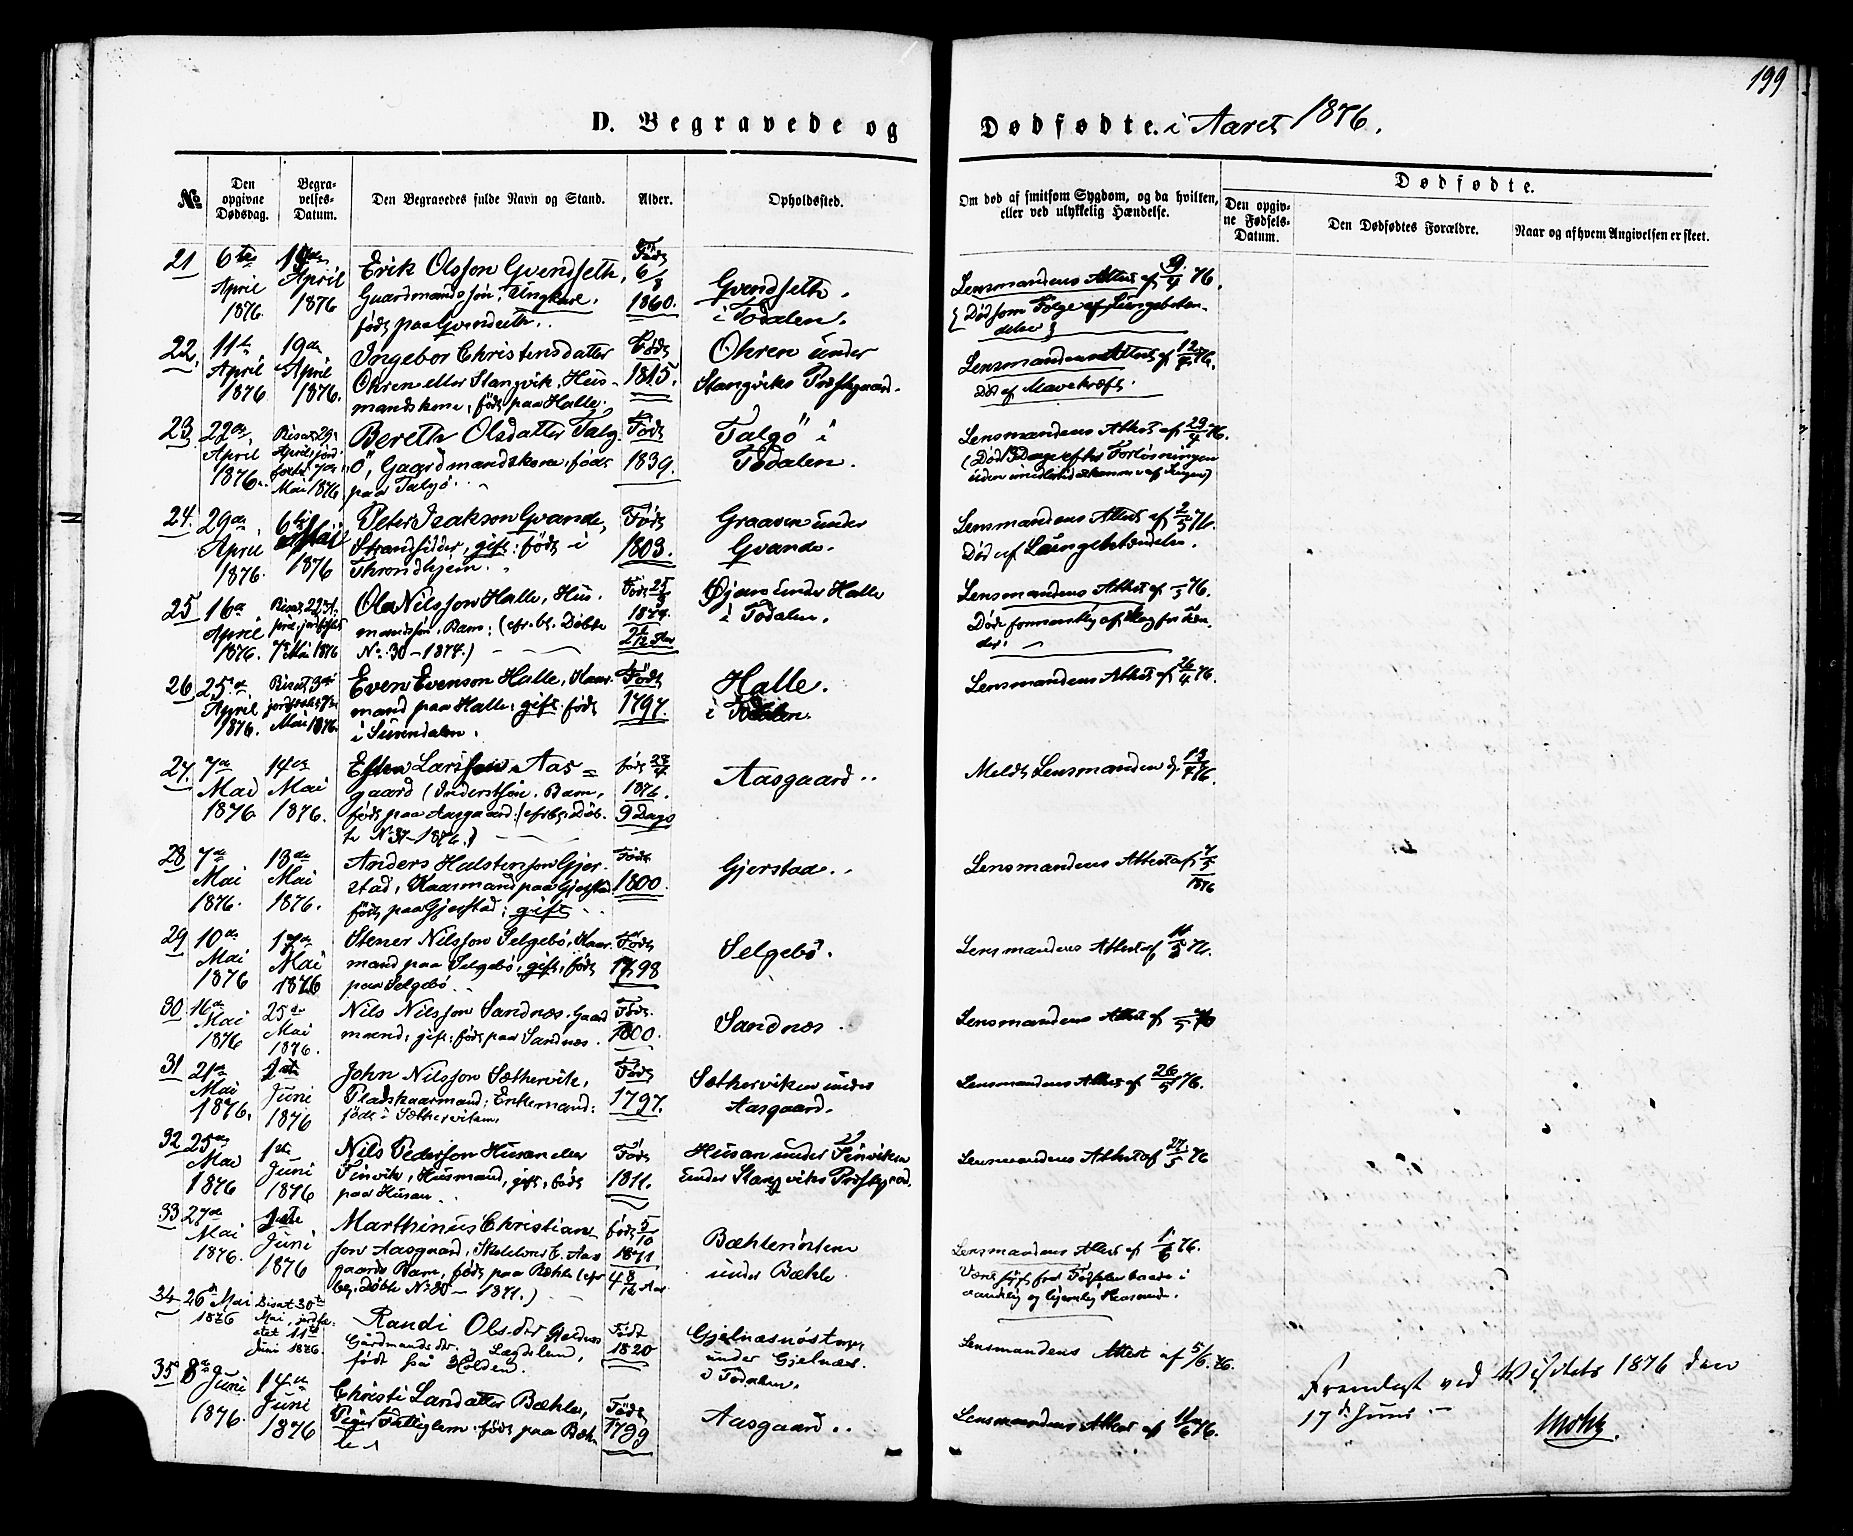 199
D. Begravede og Dødfødte. i Aaret 1876.
No.
Den opgivne Dødsdag.
Begravelses-Datum.
Den Begravedes fulde Navn og Stand.
Alder.
Opholdssted.
Om død af smitsom Sygdom, og da hvilken, eller ved ulykkelig Hændelse.
Dødfødte.
Den opgivne Fødsels-Datum.
Den Dødfødtes Forældre.
Naar og af hvem Angivelsen er skeet.
21 6te April 1876 April 1876
Erik Olsson Gvendseth,
Gaardmandssøn, Ungkarl.
født paa Gvendseth.
Født 6/8 1860.
Gvendseth.
i Todalen.
Lensmandens Attest af 9/4 76.
{Død som Følge af Lungebetæn-
delse}
22. 11te April 1876 19de April 1876.
Ingebor Christensdatter
Ohren eller Stangvik, Hus-
mandskone, født paa Halle.
Født 1815.
Ohren under
Stangviks Præstgaard.
Lensmandens Attest af 12/4 76.
Død af Mavekræft.
23. 22de April 1876. Bisat 29 April, jordfæstet 7de Mai 1876
Bereth Olsdatter Talg-
ö, Gaardmandskone, født
paa Talgö.
Født 1839.
Talgö i
Todalen.
Lensmandens Attest af 29/4 76.
(Død Dage efter Forløsningen
uden imidlertid at komme af Sengen)
24. 29de April 1876. 6te Mai 1876
Peter Isakson Gvande,
Strandsidder, gift: født i
Throndhjem.
Født 1803.
Graaven under
Gvande.
Lensmandens Attest af 2/5 76.
Død af Lungebetændelse.
25 16de April 1876. Bisat 22 April, jordfæstet 7de Mai 1876
Ola Nilsson Halle, Hus-
mandssøn, Barn: (cfr. bl. Døbte
No. 30 - 1874.)
Født 25/3 1874.
Øjan under Halle
i Todalen.
Lensmandens Attest af 76.
26 25de April 1876. Bisat 3de jordfæstet 7de Mai 1876.
Even Evenson Halle, Kaar-
mand paa Halle: gift: født
i Surendalen.
Født 1797.
Halle.
i Todalen.
Lensmandens Attest af 26/4 76.
27. 7de Mai 1876 14de Mai 1876.
Esten Larsson Aas-
gaard (Inderstsøn. Barn,
født paa Aasgaard: (cfr. bl. Døb-
te No. 37 - 1876.)
født 28/4 1876.
9 Dage
Aasgaard.
Meldt Lensmanden d.
28 7de Mai 1876. 13de Mai 1876.
Anders Halstensson Gjer-
stad, Kaarmand paa Gjerstad,
født paa Gjerstad: gift
Født 1800.
Gjerstad.
Lensmandens Attest af 7/5 1876
29 10de Mai 1876 17de Mai 1876
Stener Nilsson Selgebö, Kaar-
mand paa Selgebö, gift, født
paa Selgebö.
Født 1798
Selgebö.
Lensmandens Attest af 11/5 76.
30 16de Mai 1876 25de Mai 1876.
Nils Nilsson Sandnæs. Gaard
mand; gift: født paa Sandnæs.
Født 1800.
Sandnæs.
Lensmandens Attest af
31 21de Mai 1876. 1ste Juni 1876
John Nilsson Sæthervik,
Pladskaarmand; Enkemand:
født i Sæthervikem
Født 1797.
Sætherviken under
Aasgaard.
Lensmandens Attest af 26/5 76.
32 25de Mai 1876 1ste Juni 1876
Nils Pedersson Husan eller
Finvik, Husmand, gift, født
paa Husan.
Født 1811.
Husan under Finviken
under Stangviks Præstgaard.
Lensmandens Attest af 27/5 76
33 27de Mai 1876. Juni 1876
Marthinus Christian-
son Aasgaard,
gaards Barn, født paa Bæhle (cfr
bl. Døbte No. 80 - 1871.)
født 5/10 1871
4 8/12 Aar
Bæhlenöstene
under Bæhle
Lensmandens Attest af 1/6 76.
34 26de Mai 1876 Bisat 30te Mai, jordfæstet 11te Juni 1876.
Randi Olsdtr
Gårdmandsdtr. Lægdslem,
født på Holden.
Født 1820
Gjelnæsnöstene
under Gjelnæs.
i Todalen.
Lensmandens Attest af 5/6. 76.
35 8de Juni 1876. 14de Juni 1876
Christi Larsdatter Bæhle,
Pige: Fattiglem: født paa Bæh-
le
Født 1799
Aasgaard.
Lensmandens Attest af
Fremlagt ved Visitats 1876 den
17de Juni